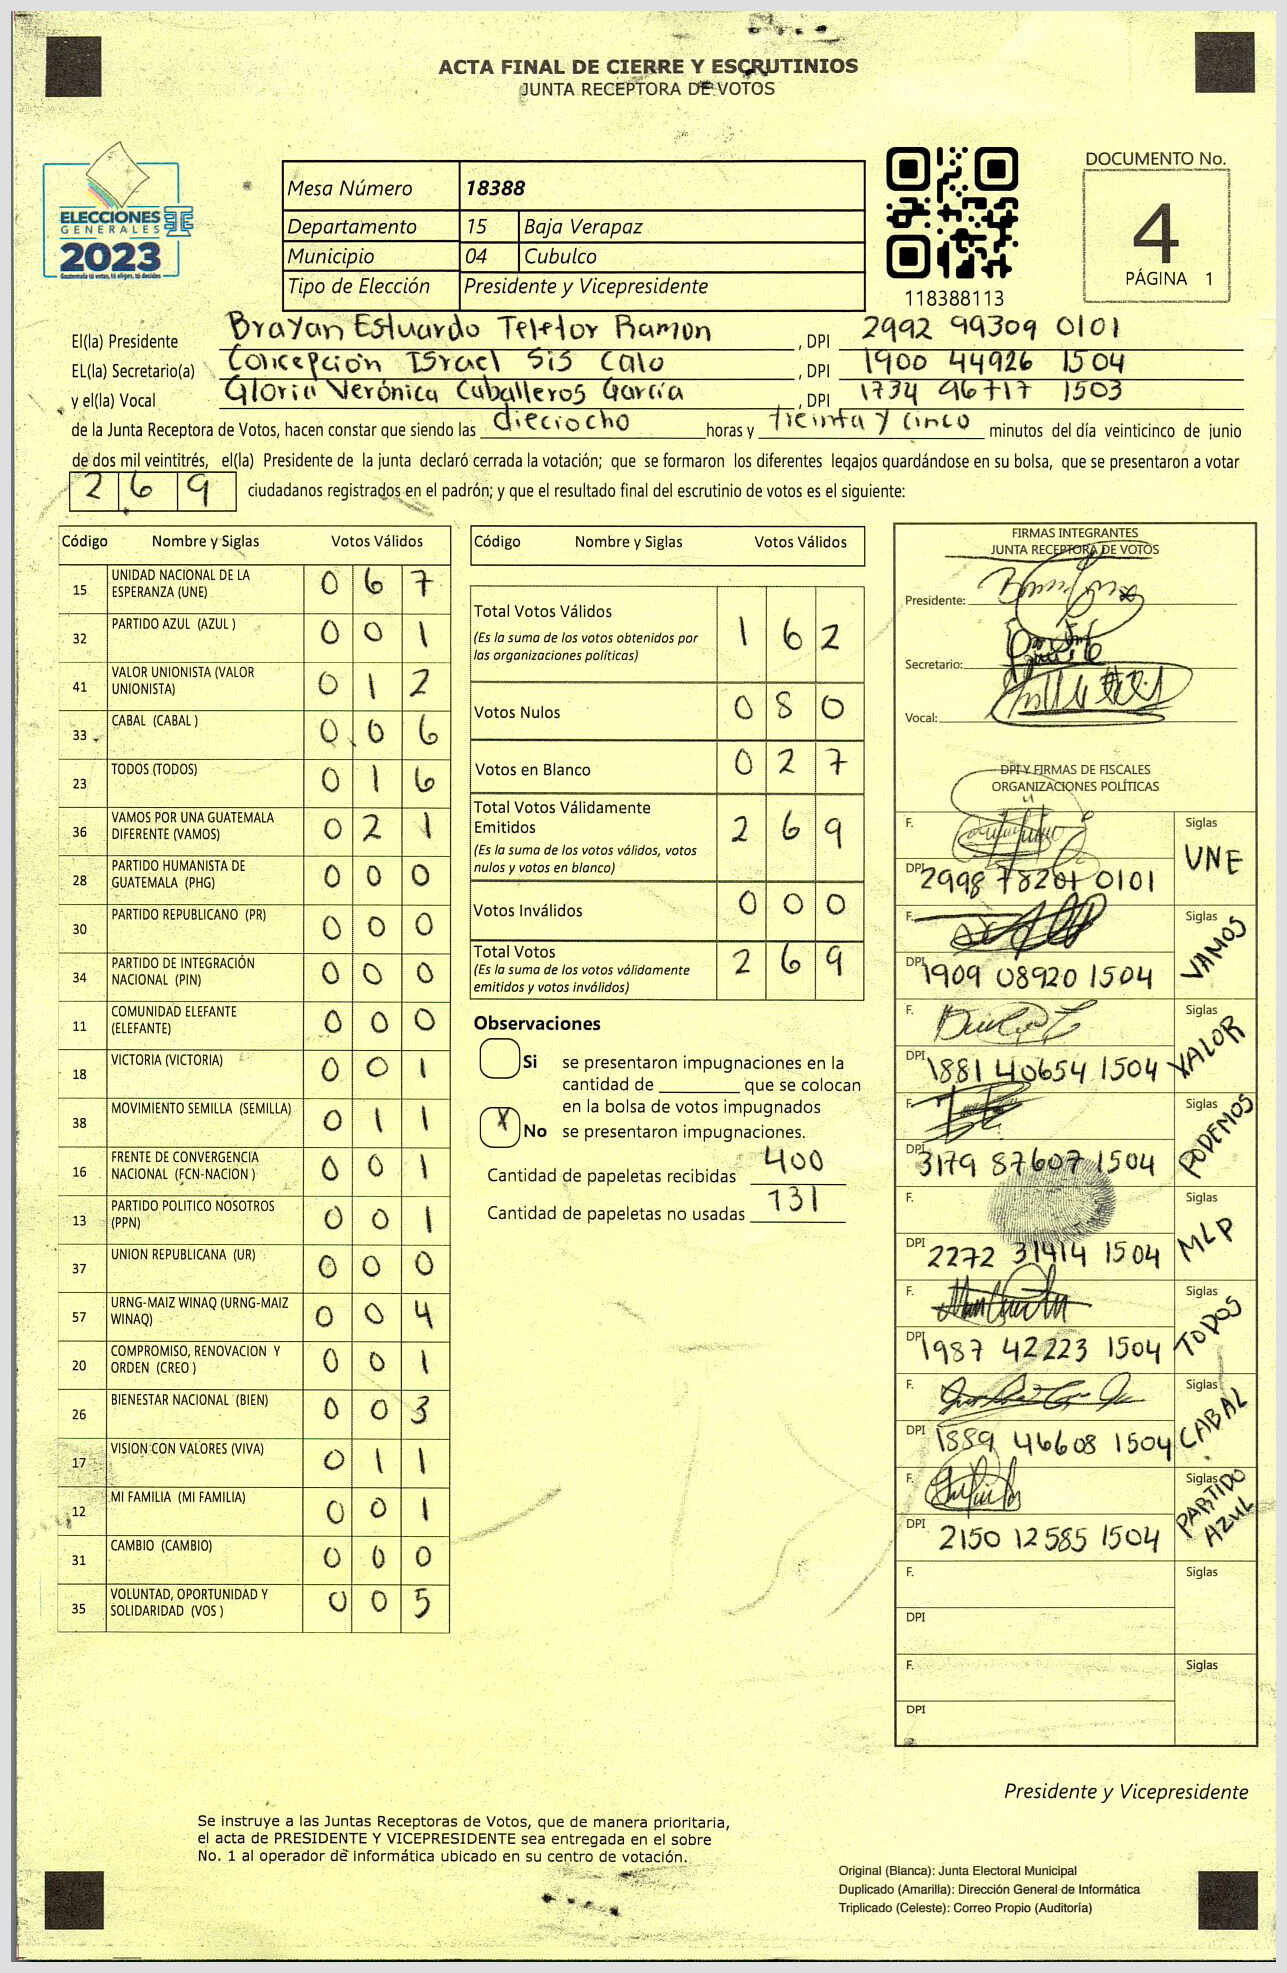 ACTA FINAL DE CIERRE Y ESCRUTINIOS
JUNTA RECEPTORA DE VOTOS
ELECCIONES
GENERALES
2023
Guatemala tú votas, tú eliges, tú decides
Mesa Número 18388
Departamento 15 Baja Verapaz
Municipio 04 Cubulco
Tipo de Elección Presidente y Vicepresidente
118388113
DOCUMENTO No.
4
PÁGINA 1
El(la) Presidente Brayan Estuardo Teletor Ramon , DPI 2992 99309 0101
EL(la) Secretario(a) Concepción Israel Sis Calo , DPI 1900 44926 1504
y el(la) Vocal Gloria Verónica Caballeros García , DPI 1734 96717 1503
de la Junta Receptora de Votos, hacen constar que siendo las dieciocho horas y treinta y cinco minutos del día veinticinco de junio
de dos mil veintitrés, el(la) Presidente de la junta declaró cerrada la votación; que se formaron los diferentes legajos guardándose en su bolsa, que se presentaron a votar
2 6 9 ciudadanos registrados en el padrón; y que el resultado final del escrutinio de votos es el siguiente:
Código Nombre y Siglas Votos Válidos
15 UNIDAD NACIONAL DE LA ESPERANZA (UNE) 0 6 7
32 PARTIDO AZUL (AZUL ) 0 0 1
41 VALOR UNIONISTA (VALOR UNIONISTA) 0 1 2
33 CABAL (CABAL ) 0 0 6
23 TODOS (TODOS) 0 1 6
36 VAMOS POR UNA GUATEMALA DIFERENTE (VAMOS) 0 2 1
28 PARTIDO HUMANISTA DE GUATEMALA (PHG) 0 0 0
30 PARTIDO REPUBLICANO (PR) 0 0 0
34 PARTIDO DE INTEGRACIÓN NACIONAL (PIN) 0 0 0
11 COMUNIDAD ELEFANTE (ELEFANTE) 0 0 0
18 VICTORIA (VICTORIA) 0 0 1
38 MOVIMIENTO SEMILLA (SEMILLA) 0 1 1
16 FRENTE DE CONVERGENCIA NACIONAL (FCN-NACION ) 0 0 1
13 PARTIDO POLITICO NOSOTROS (PPN) 0 0 1
37 UNION REPUBLICANA (UR) 0 0 0
57 URNG-MAIZ WINAQ (URNG-MAIZ WINAQ) 0 0 4
20 COMPROMISO, RENOVACION Y ORDEN (CREO ) 0 0 1
26 BIENESTAR NACIONAL (BIEN) 0 0 3
17 VISION CON VALORES (VIVA) 0 1 1
12 MI FAMILIA (MI FAMILIA) 0 0 1
31 CAMBIO (CAMBIO) 0 0 0
35 VOLUNTAD, OPORTUNIDAD Y SOLIDARIDAD (VOS ) 0 0 5
Código Nombre y Siglas Votos Válidos
Total Votos Válidos 1 6 2
(Es la suma de los votos obtenidos por
las organizaciones políticas)
Votos Nulos 0 8 0
Votos en Blanco 0 2 7
Total Votos Válidamente
Emitidos 2 6 9
(Es la suma de los votos válidos, votos
nulos y votos en blanco)
Votos Inválidos 0 0 0
Total Votos 2 6 9
(Es la suma de los votos válidamente
emitidos y votos inválidos)
Observaciones
Si se presentaron impugnaciones en la
cantidad de ________ que se colocan
en la bolsa de votos impugnados
X No se presentaron impugnaciones.
Cantidad de papeletas recibidas 400
Cantidad de papeletas no usadas 131
FIRMAS INTEGRANTES
JUNTA RECEPTORA DE VOTOS
Presidente:
Secretario:
Vocal:
DPI Y FIRMAS DE FISCALES
ORGANIZACIONES POLÍTICAS
F. Siglas UNE
DPI 2998 78201 0101
F. Siglas VAMOS
DPI 1909 08920 1504
F. Siglas VALOR
DPI 1881 40654 1504
F. Siglas PODEMOS
DPI 3179 87607 1504
F. Siglas MLP
DPI 2272 31414 1504
F. Siglas TODOS
DPI 1987 42223 1504
F. Siglas CABAL
DPI 1889 46608 1504
F. Siglas PARTIDO AZUL
DPI 2150 12585 1504
F. Siglas
DPI
F. Siglas
DPI
Presidente y Vicepresidente
Se instruye a las Juntas Receptoras de Votos, que de manera prioritaria,
el acta de PRESIDENTE Y VICEPRESIDENTE sea entregada en el sobre
No. 1 al operador de informática ubicado en su centro de votación.
Original (Blanca): Junta Electoral Municipal
Duplicado (Amarilla): Dirección General de Informática
Triplicado (Celeste): Correo Propio (Auditoría)